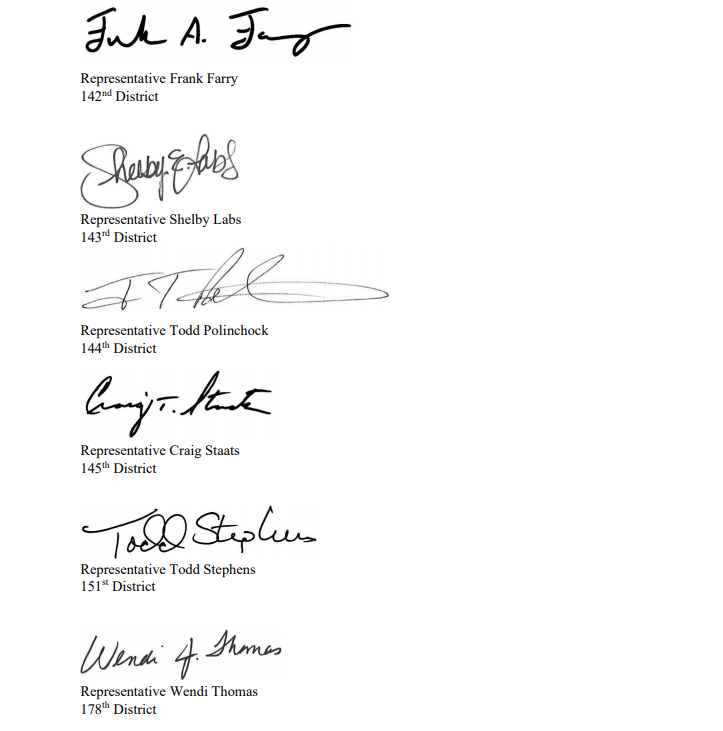 Frank A. Farry
Representative Frank Farry
142nd District
Shelby Labs
Representative Shelby Labs
143rd District
Representative Todd Polinchock
144th District
Craig T. Staats
Representative Craig Staats
145th District
Todd Stephens
Representative Todd Stephens
151st District
Wendi J. Thomas
Representative Wendi Thomas
178th District